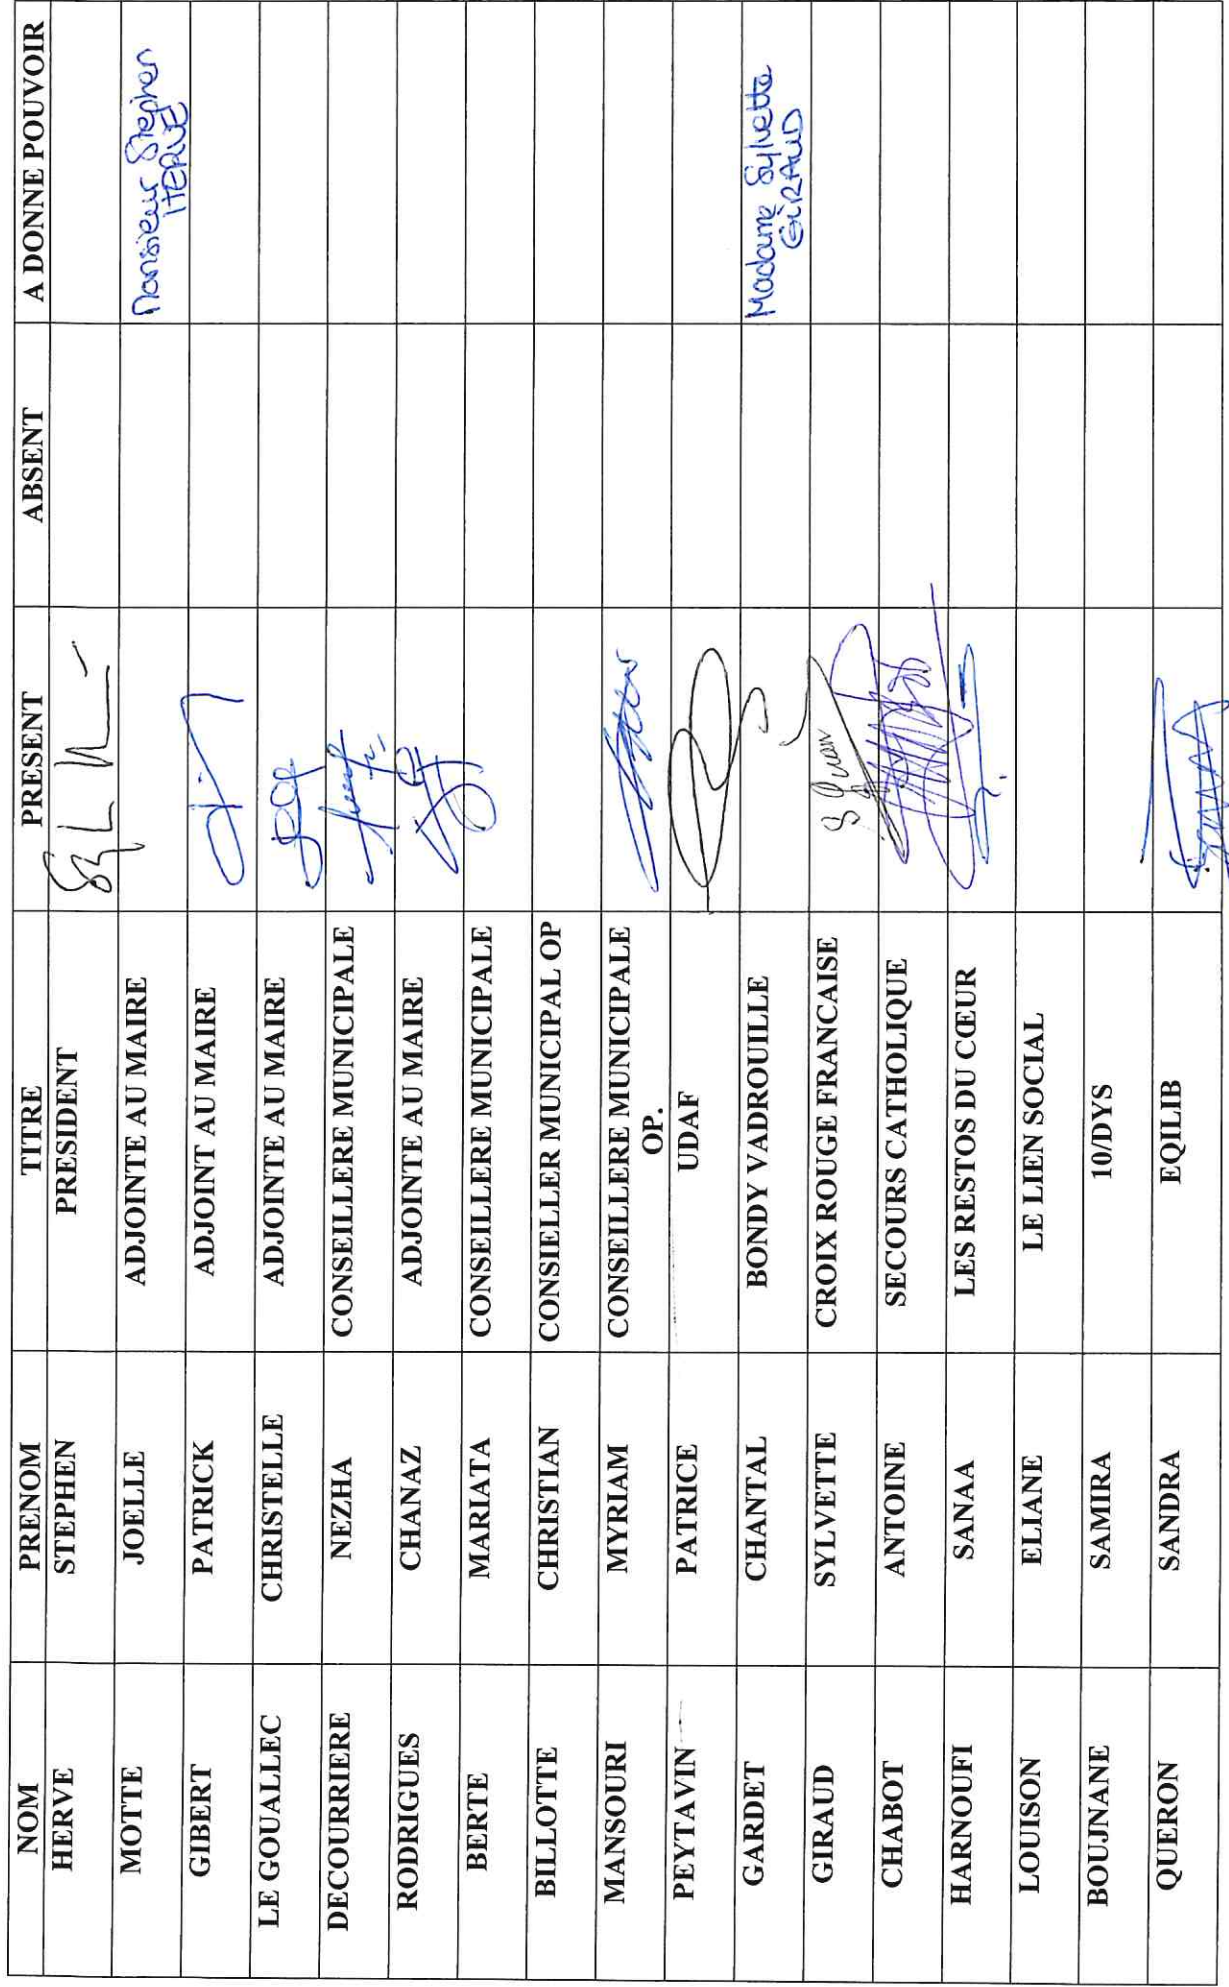 NOM PRENOM TITRE PRESENT ABSENT A DONNE POUVOIR
HERVE STEPHEN PRESIDENT
MOTTE JOELLE ADJOINTE AU MAIRE Monsieur Stephen
HERVE
GIBERT PATRICK ADJOINT AU MAIRE
LE GOUALLEC CHRISTELLE ADJOINTE AU MAIRE
DECOURRIERE NEZHA CONSEILLERE MUNICIPALE
RODRIGUES CHANAZ ADJOINTE AU MAIRE
BERTE MARIATA CONSEILLERE MUNICIPALE
BILLOTTE CHRISTIAN CONSIELLER MUNICIPAL OP
MANSOURI MYRIAM CONSEILLERE MUNICIPALE
OP.
PEYTAVIN PATRICE UDAF
GARDET CHANTAL BONDY VADROUILLE Madame Sylvette
GIRAUD
GIRAUD SYLVETTE CROIX ROUGE FRANCAISE
CHABOT ANTOINE SECOURS CATHOLIQUE
HARNOUFI SANAA LES RESTOS DU CŒUR
LOUISON ELIANE LE LIEN SOCIAL
BOUJNANE SAMIRA 10/DYS
QUERON SANDRA EQILIB